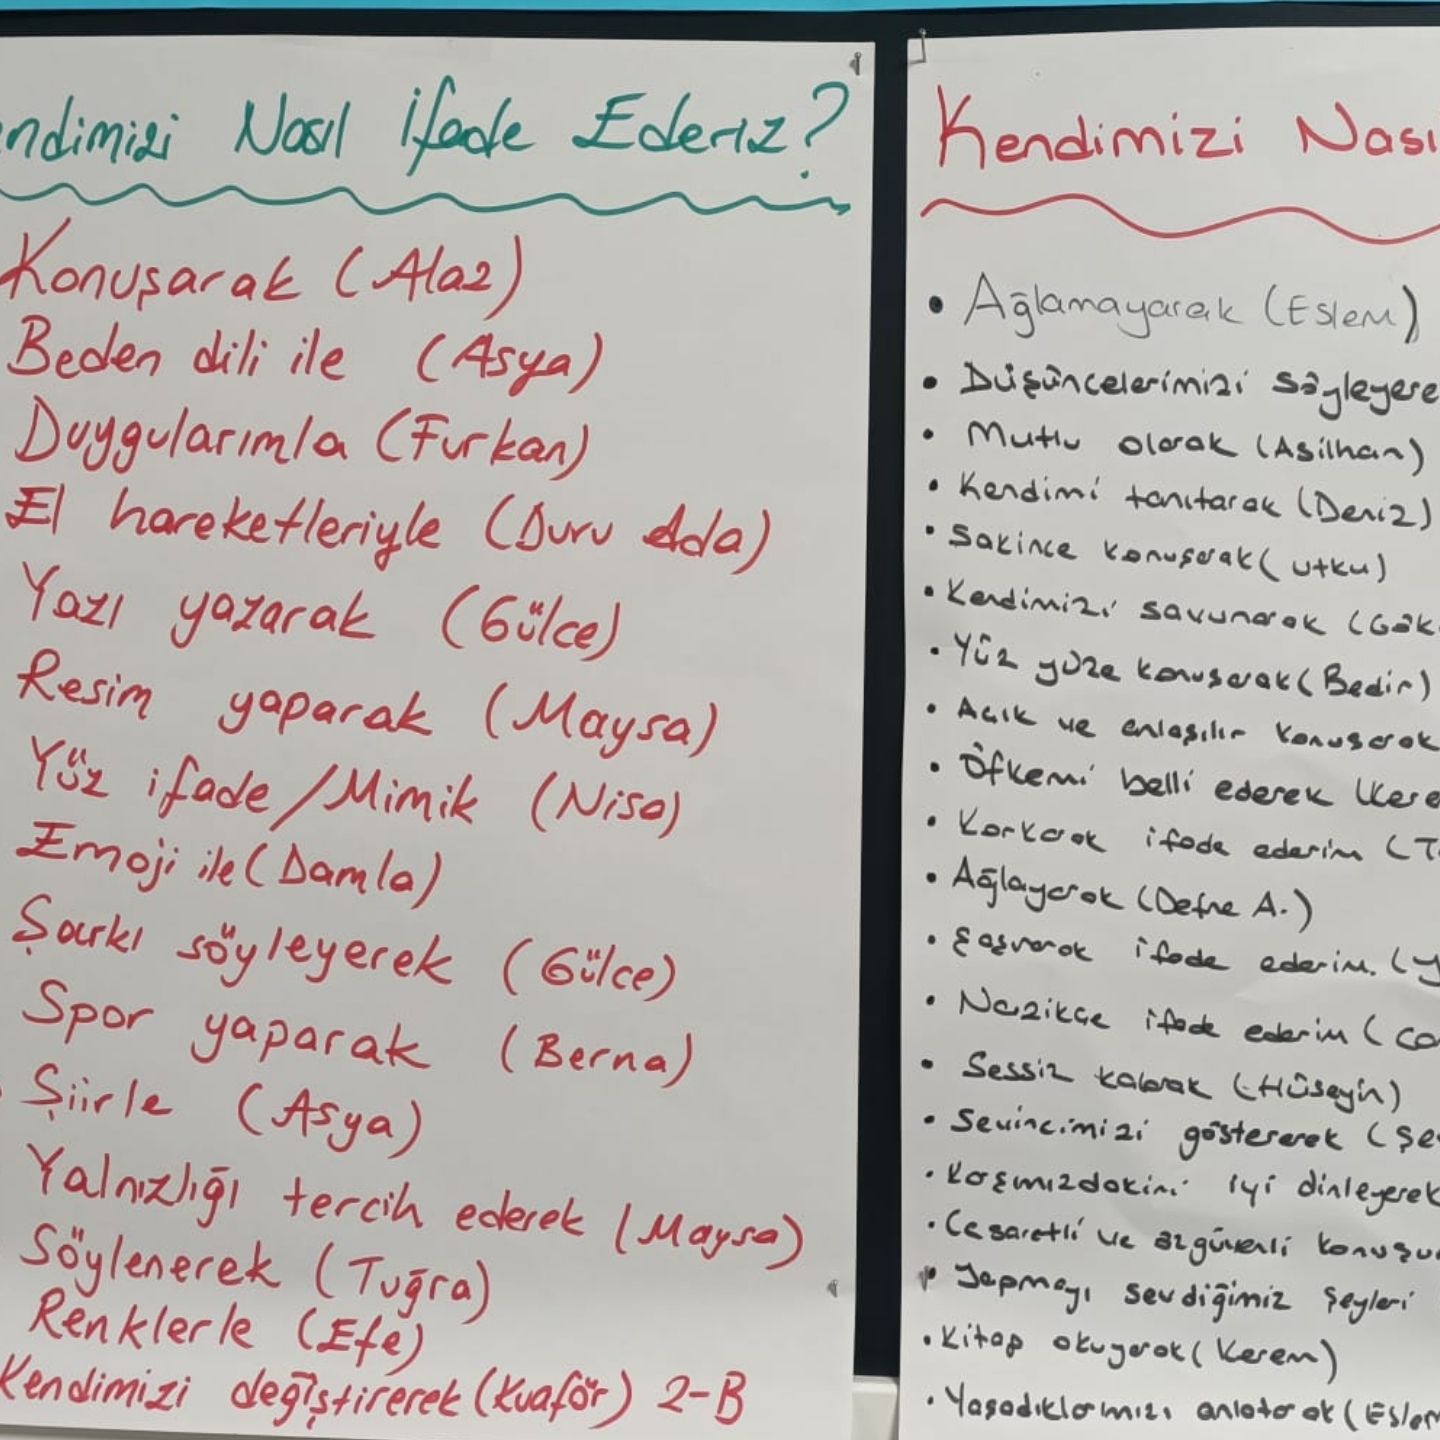 endimizi Nasıl İfade Ederiz?
Konuşarak (Alaz)
Beden dili ile (Asya)
Duygularımla (Furkan)
El hareketleriyle (Duru Ada)
Yazı yazarak (Gülce)
Resim yaparak (Maysa)
Yüz ifade/Mimik (Nisa)
Emoji ile (Damla)
Şarkı söyleyerek (Gülce)
Spor yaparak (Berna)
Şiirle (Asya)
Yalnızlığı tercih ederek (Maysa)
Söylenerek (Tuğra)
Renklerle (Efe)
Kendimizi değiştirerek (Kuaför) 2-B
Kendimizi Nası
• Ağlamayarak (Eslem)
• Düşüncelerimizi söyleyere
• Mutlu olarak (Asilhan)
• Kendimi tanıtarak (Deniz)
• Sakince konuşarak (utku)
• Kendimizi savunarak (Gök
• Yüz yüze konuşarak (Bedir)
• Açık ve anlaşılır konuşarak
• Öfkemi belli ederek (Kere
• Korkarak ifade ederim (T
• Ağlayarak (Defne A.)
• Şaşırarak ifade ederim. (Y
• Nazikçe ifade ederim (Ca
• Sessiz kalarak (Hüseyin)
• Sevincimizi göstererek (Şe
• Karşımızdakini iyi dinleyerek
• Cesaretli ve özgüvenli konuşu
• Yapmayı sevdiğimiz şeyleri
• Kitap okuyarak (Kerem)
• Yaşadıklarımızı anlatarak (Eslem